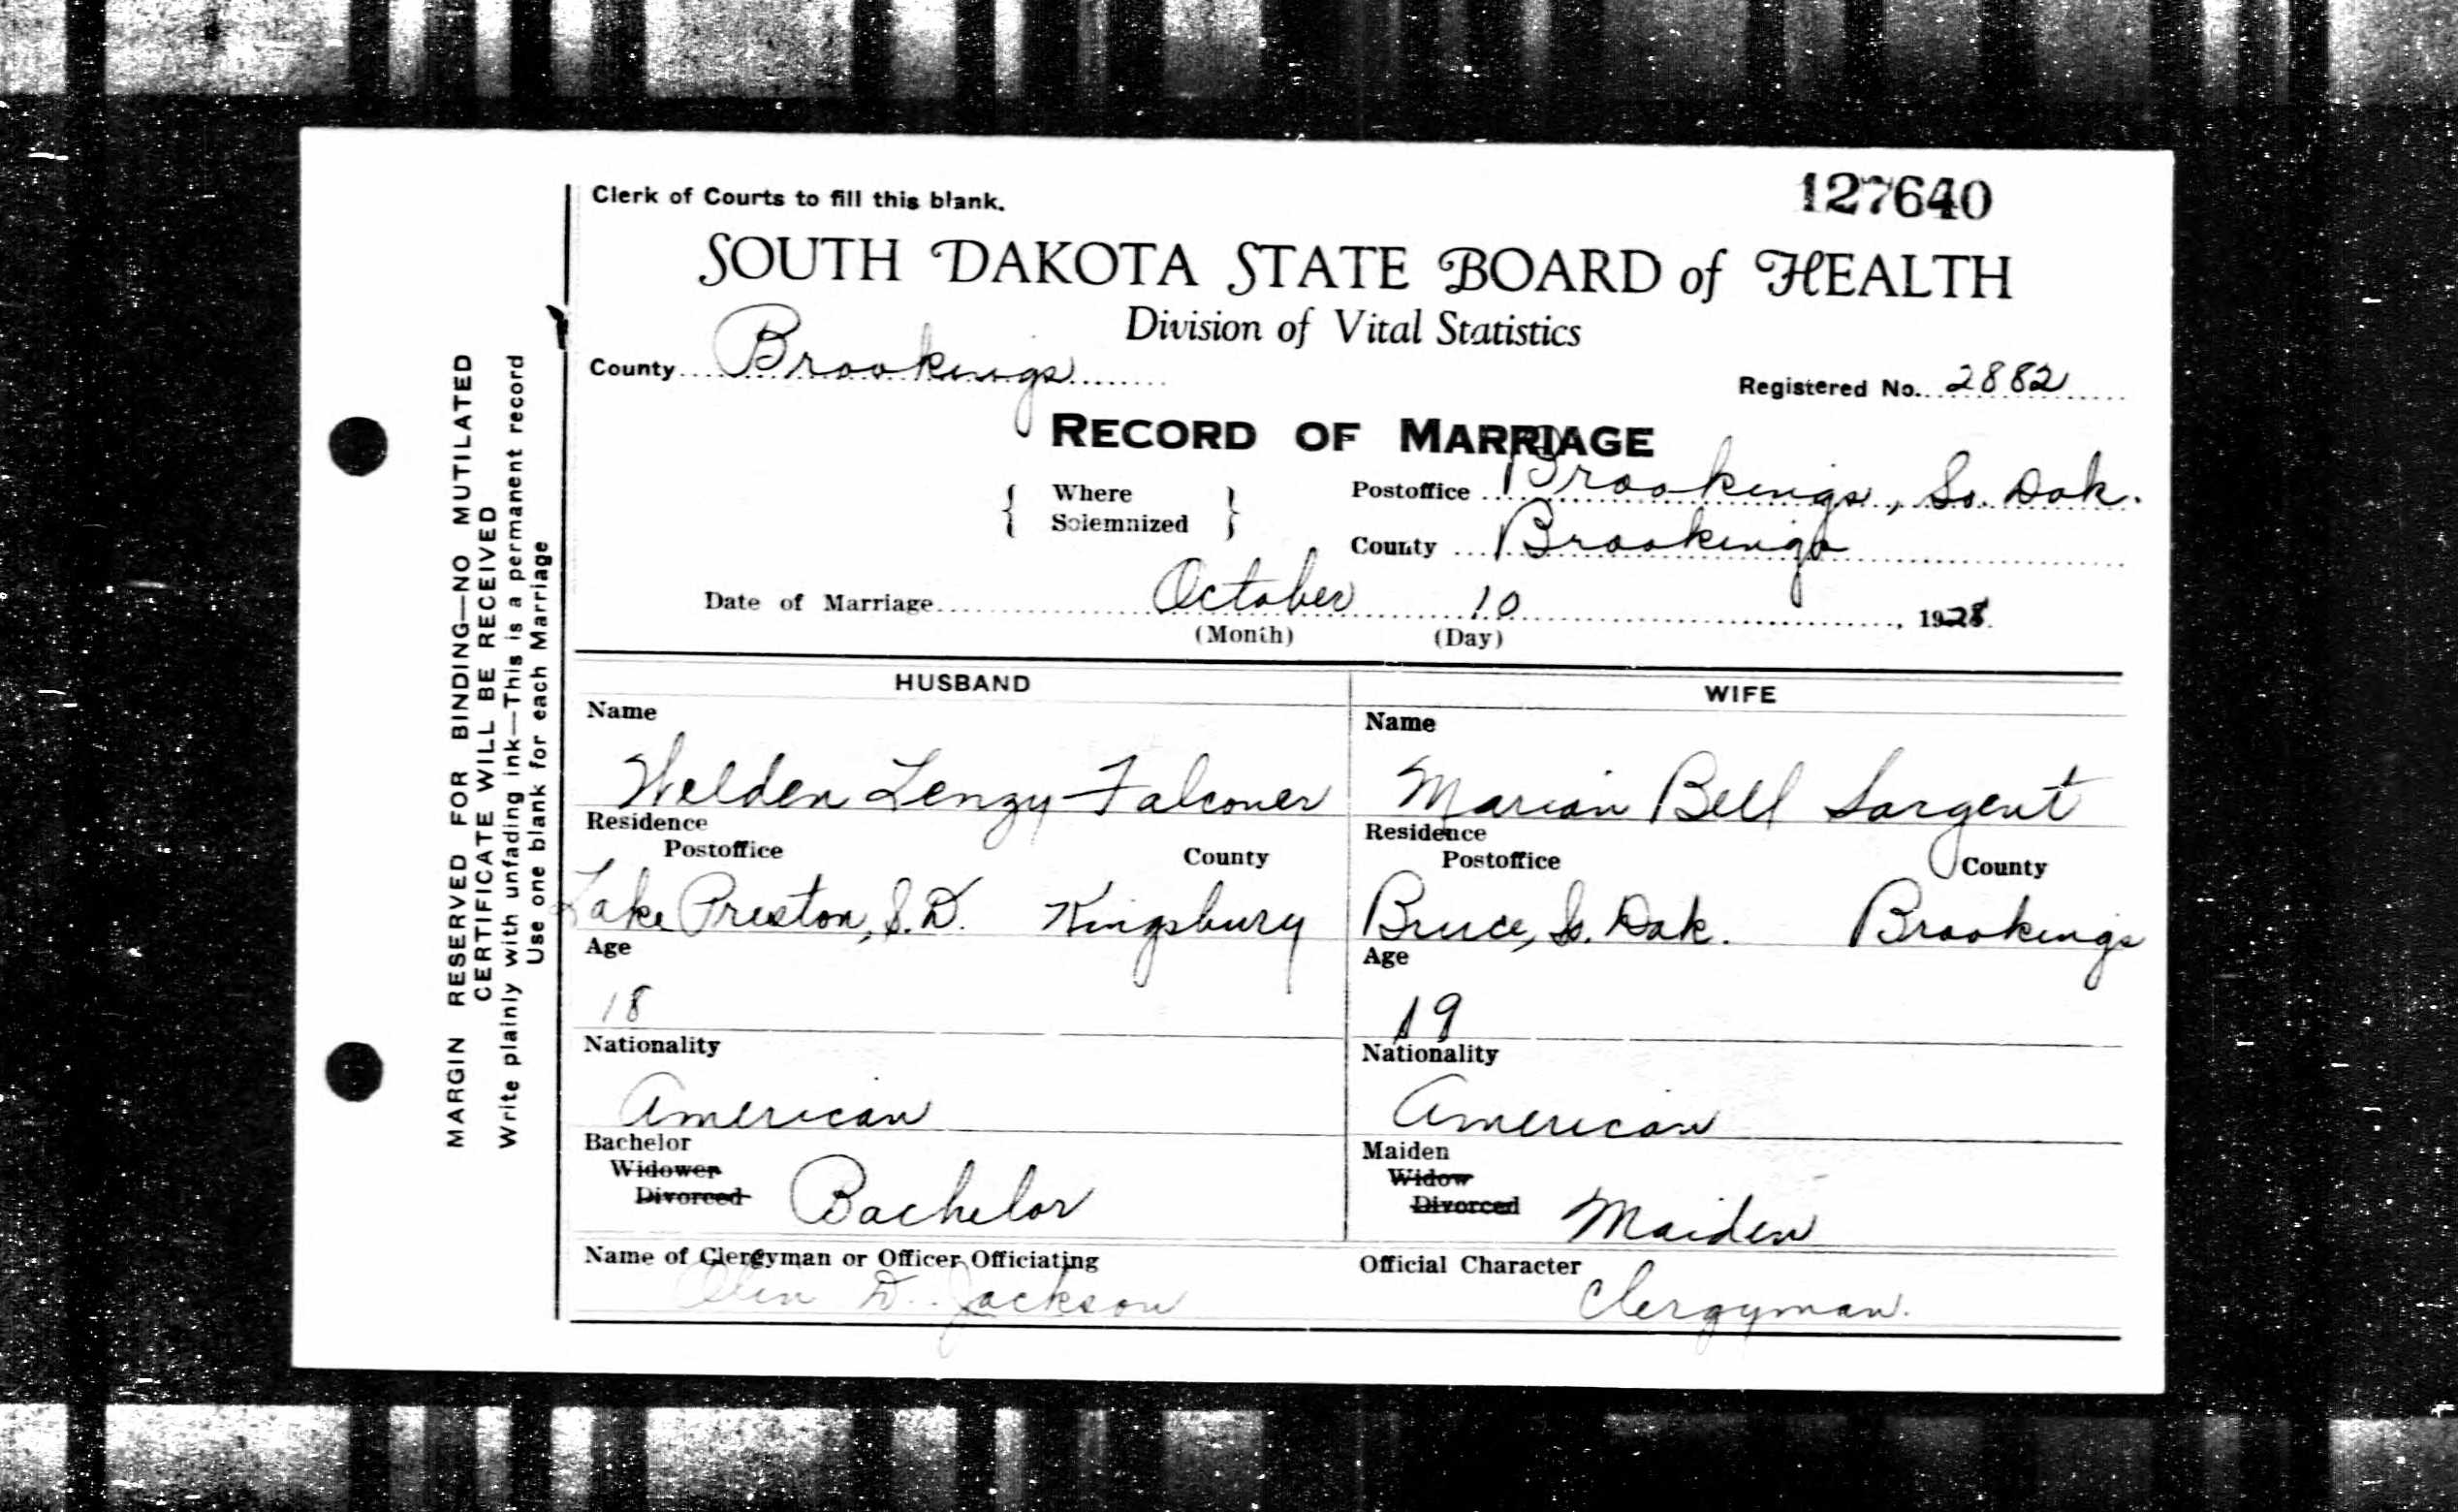 Clerk of Courts to fill this blank.
127640
SOUTH DAKOTA STATE BOARD of HEALTH
Division of Vital Statistics
County Brookings
Registered No. 2882
RECORD OF MARRIAGE
Where Solemnized
Postoffice Brookings, So. Dak.
County Brookings
Date of Marriage October 10, 1928.
(Month) (Day)
HUSBAND
Name
Welden Lenzy Falconer
Residence
Postoffice County
Lake Preston, S.D. Kingsbury
Age
18
Nationality
American
Bachelor
Widower
Divorced Bachelor
WIFE
Name
Marian Bell Sargent
Residence
Postoffice County
Bruce, So. Dak. Brookings
Age
19
Nationality
American
Maiden
Widow
Divorced Maiden
Name of Clergyman or Officer Officiating
D. Jackson
Official Character
Clergyman.
MARGIN RESERVED FOR BINDING—NO MUTILATED
CERTIFICATE WILL BE RECEIVED
Write plainly with unfading ink—This is a permanent record
Use one blank for each Marriage